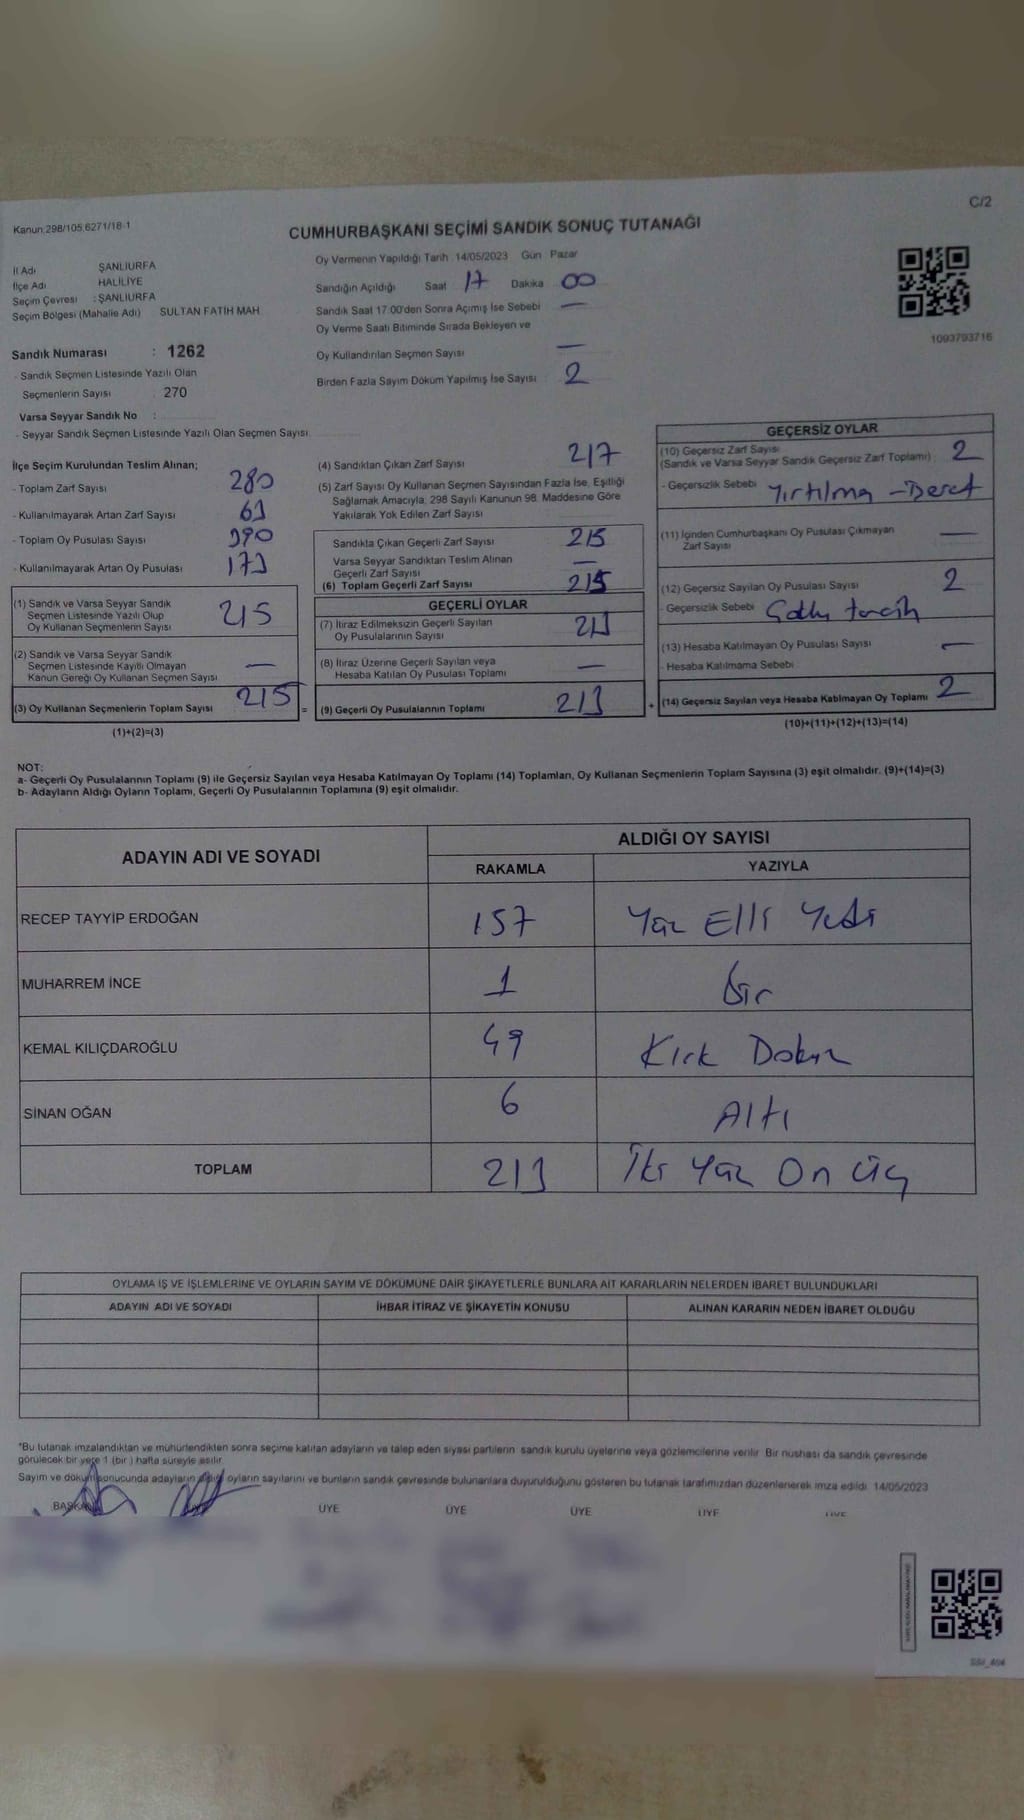 C/2
Kanun:298/105,6271/18-1
CUMHURBAŞKANI SEÇİMİ SANDIK SONUÇ TUTANAĞI
İl Adı ŞANLIURFA
İlçe Adı HALİLİYE
Seçim Çevresi : ŞANLIURFA
Seçim Bölgesi (Mahalle Adı) SULTAN FATİH MAH.
Oy Vermenin Yapıldığı Tarih 14/05/2023 Gün Pazar
Sandığın Açıldığı Saat 17 Dakika 00
Sandık Saat 17:00'den Sonra Açımış İse Sebebi —
Oy Verme Saati Bitiminde Sırada Bekleyen ve
Oy Kullandırılan Seçmen Sayısı —
Birden Fazla Sayım Döküm Yapılmış İse Sayısı 2
1093793716
Sandık Numarası : 1262
- Sandık Seçmen Listesinde Yazılı Olan
Seçmenlerin Sayısı 270
Varsa Seyyar Sandık No :
- Seyyar Sandık Seçmen Listesinde Yazılı Olan Seçmen Sayısı:
İlçe Seçim Kurulundan Teslim Alınan;
- Toplam Zarf Sayısı 280
- Kullanılmayarak Artan Zarf Sayısı 63
- Toplam Oy Pusulası Sayısı 390
- Kullanılmayarak Artan Oy Pusulası 173
(1) Sandık ve Varsa Seyyar Sandık
Seçmen Listesinde Yazılı Olup
Oy Kullanan Seçmenlerin Sayısı 215
(2) Sandık ve Varsa Seyyar Sandık
Seçmen Listesinde Kayıtlı Olmayan
Kanun Gereği Oy Kullanan Seçmen Sayısı —
(3) Oy Kullanan Seçmenlerin Toplam Sayısı 215
(1)+(2)=(3)
=
(4) Sandıktan Çıkan Zarf Sayısı 217
(5) Zarf Sayısı Oy Kullanan Seçmen Sayısından Fazla İse, Eşitliği
Sağlamak Amacıyla, 298 Sayılı Kanunun 98. Maddesine Göre
Yakılarak Yok Edilen Zarf Sayısı
Sandıkta Çıkan Geçerli Zarf Sayısı 215
Varsa Seyyar Sandıktan Teslim Alınan
Geçerli Zarf Sayısı —
(6) Toplam Geçerli Zarf Sayısı 215
GEÇERLİ OYLAR
(7) İtiraz Edilmeksizin Geçerli Sayılan
Oy Pusulalarının Sayısı 213
(8) İtiraz Üzerine Geçerli Sayılan veya
Hesaba Katılan Oy Pusulası Toplamı —
(9) Geçerli Oy Pusulalarının Toplamı 213
+
GEÇERSİZ OYLAR
(10) Geçersiz Zarf Sayısı
(Sandık ve Varsa Seyyar Sandık Geçersiz Zarf Toplamı) : 2
- Geçersizlik Sebebi Yırtılma -
(11) İçinden Cumhurbaşkanı Oy Pusulası Çıkmayan
Zarf Sayısı —
(12) Geçersiz Sayılan Oy Pusulası Sayısı 2
- Geçersizlik Sebebi Çoklu tercih
(13) Hesaba Katılmayan Oy Pusulası Sayısı —
- Hesaba Katılmama Sebebi
(14) Geçersiz Sayılan veya Hesaba Katılmayan Oy Toplamı 2
(10)+(11)+(12)+(13)=(14)
NOT:
a- Geçerli Oy Pusulalarının Toplamı (9) ile Geçersiz Sayılan veya Hesaba Katılmayan Oy Toplamı (14) Toplamları, Oy Kullanan Seçmenlerin Toplam Sayısına (3) eşit olmalıdır. (9)+(14)=(3)
b- Adayların Aldığı Oyların Toplamı, Geçerli Oy Pusulalarının Toplamına (9) eşit olmalıdır.
ADAYIN ADI VE SOYADI ALDIĞI OY SAYISI
RAKAMLA YAZIYLA
RECEP TAYYİP ERDOĞAN 157 Yüz Elli Yedi
MUHARREM İNCE 1 bir
KEMAL KILIÇDAROĞLU 49 Kırk Dokuz
SİNAN OĞAN 6 Altı
TOPLAM 213 İki Yüz On Üç
OYLAMA İŞ VE İŞLEMLERİNE VE OYLARIN SAYIM VE DÖKÜMÜNE DAİR ŞİKAYETLERLE BUNLARA AİT KARARLARIN NELERDEN İBARET BULUNDUKLARI
ADAYIN ADI VE SOYADI İHBAR İTİRAZ VE ŞİKAYETİN KONUSU ALINAN KARARIN NEDEN İBARET OLDUĞU
*Bu tutanak imzalandıktan ve mühürlendikten sonra seçime katılan adayların ve talep eden siyasi partilerin sandık kurulu üyelerine veya gözlemcilerine verilir. Bir nüshası da sandık çevresinde
görülecek bir yere 1 (bir) hafta süreyle asılır.
Sayım ve döküm sonucunda adayların aldığı oyların sayılarını ve bunların sandık çevresinde bulunanlara duyurulduğunu gösteren bu tutanak tarafımızdan düzenlenerek imza edildi. 14/05/2023
BAŞKAN ÜYE ÜYE ÜYE ÜYE ÜYE